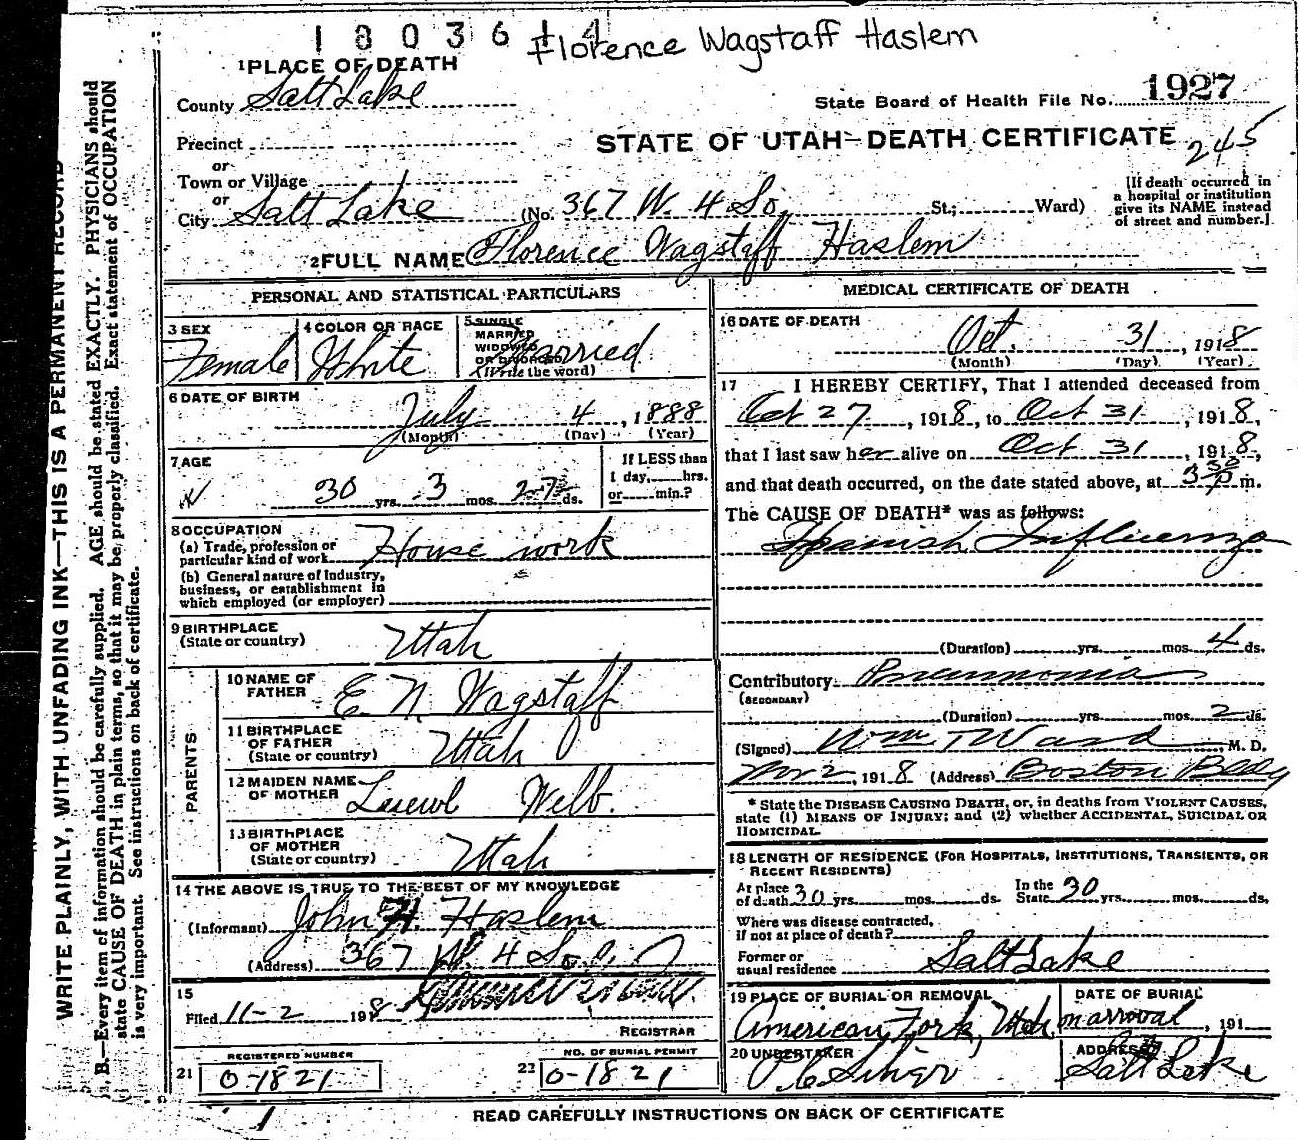 1803614 Florence Wagstaff Haslem
1 PLACE OF DEATH
County Salt Lake
State Board of Health File No. 1927
Precinct
STATE OF UTAH—DEATH CERTIFICATE
245
or
Town or Village
or
City Salt Lake (No. 367 W. 4 So. St.; Ward)
[If death occurred in
a hospital or institution
give its NAME instead
of street and number.]
2 FULL NAME Florence Wagstaff Haslem
PERSONAL AND STATISTICAL PARTICULARS
3 SEX
Female
4 COLOR OR RACE
White
5 SINGLE
MARRIED
WIDOWED
OR DIVORCED
(Write the word)
Married
6 DATE OF BIRTH
July 4, 1888
(Month) (Day) (Year)
7 AGE
30 yrs. 3 mos. 27 ds.
If LESS than
1 day, hrs.
or min.?
8 OCCUPATION
(a) Trade, profession or
particular kind of work House work
(b) General nature of Industry,
business, or establishment in
which employed (or employer)
9 BIRTHPLACE
(State or country) Utah
PARENTS
10 NAME OF
FATHER E. N. Wagstaff
11 BIRTHPLACE
OF FATHER
(State or country) Utah
12 MAIDEN NAME
OF MOTHER Webb.
13 BIRTHPLACE
OF MOTHER
(State or country) Utah
14 THE ABOVE IS TRUE TO THE BEST OF MY KNOWLEDGE
(Informant) John H. Haslem
(Address) 367 W. 4 So.
15
Filed 11-2 1918
REGISTRAR
REGISTERED NUMBER
21 0-1821
NO. OF BURIAL PERMIT
22 0-1821
MEDICAL CERTIFICATE OF DEATH
16 DATE OF DEATH
Oct. 31, 1918
(Month) (Day) (Year)
17 I HEREBY CERTIFY, That I attended deceased from
Oct 27, 1918, to Oct 31, 1918,
that I last saw her alive on Oct 31, 1918,
and that death occurred, on the date stated above, at 3 30 P m.
The CAUSE OF DEATH* was as follows:
Spanish Influenza
(Duration) yrs. mos. 4 ds.
Contributory Pneumonia
(SECONDARY)
(Duration) yrs. mos. 2 ds.
(Signed) Wm. T Ward M. D.
Nov 2, 1918 (Address) Boston Bldg
* State the DISEASE CAUSING DEATH, or, in deaths from VIOLENT CAUSES,
state (1) MEANS OF INJURY; and (2) whether ACCIDENTAL, SUICIDAL OR
HOMICIDAL.
18 LENGTH OF RESIDENCE (FOR HOSPITALS, INSTITUTIONS, TRANSIENTS, OR
RECENT RESIDENTS)
At place
of death 30 yrs. mos. ds.
In the
State 30 yrs. mos. ds.
Where was disease contracted,
if not at place of death?
Former or
usual residence Salt Lake
19 PLACE OF BURIAL OR REMOVAL
American Fork, Utah
DATE OF BURIAL
on arroval, 191
20 UNDERTAKER
ADDRESS
Salt Lake
READ CAREFULLY INSTRUCTIONS ON BACK OF CERTIFICATE
WRITE PLAINLY, WITH UNFADING INK—THIS IS A PERMANENT RECORD
B.—Every item of information should be carefully supplied. AGE should be stated EXACTLY. PHYSICIANS should
state CAUSE OF DEATH in plain terms, so that it may be properly classified. Exact statement of OCCUPATION
is very important. See instructions on back of certificate.